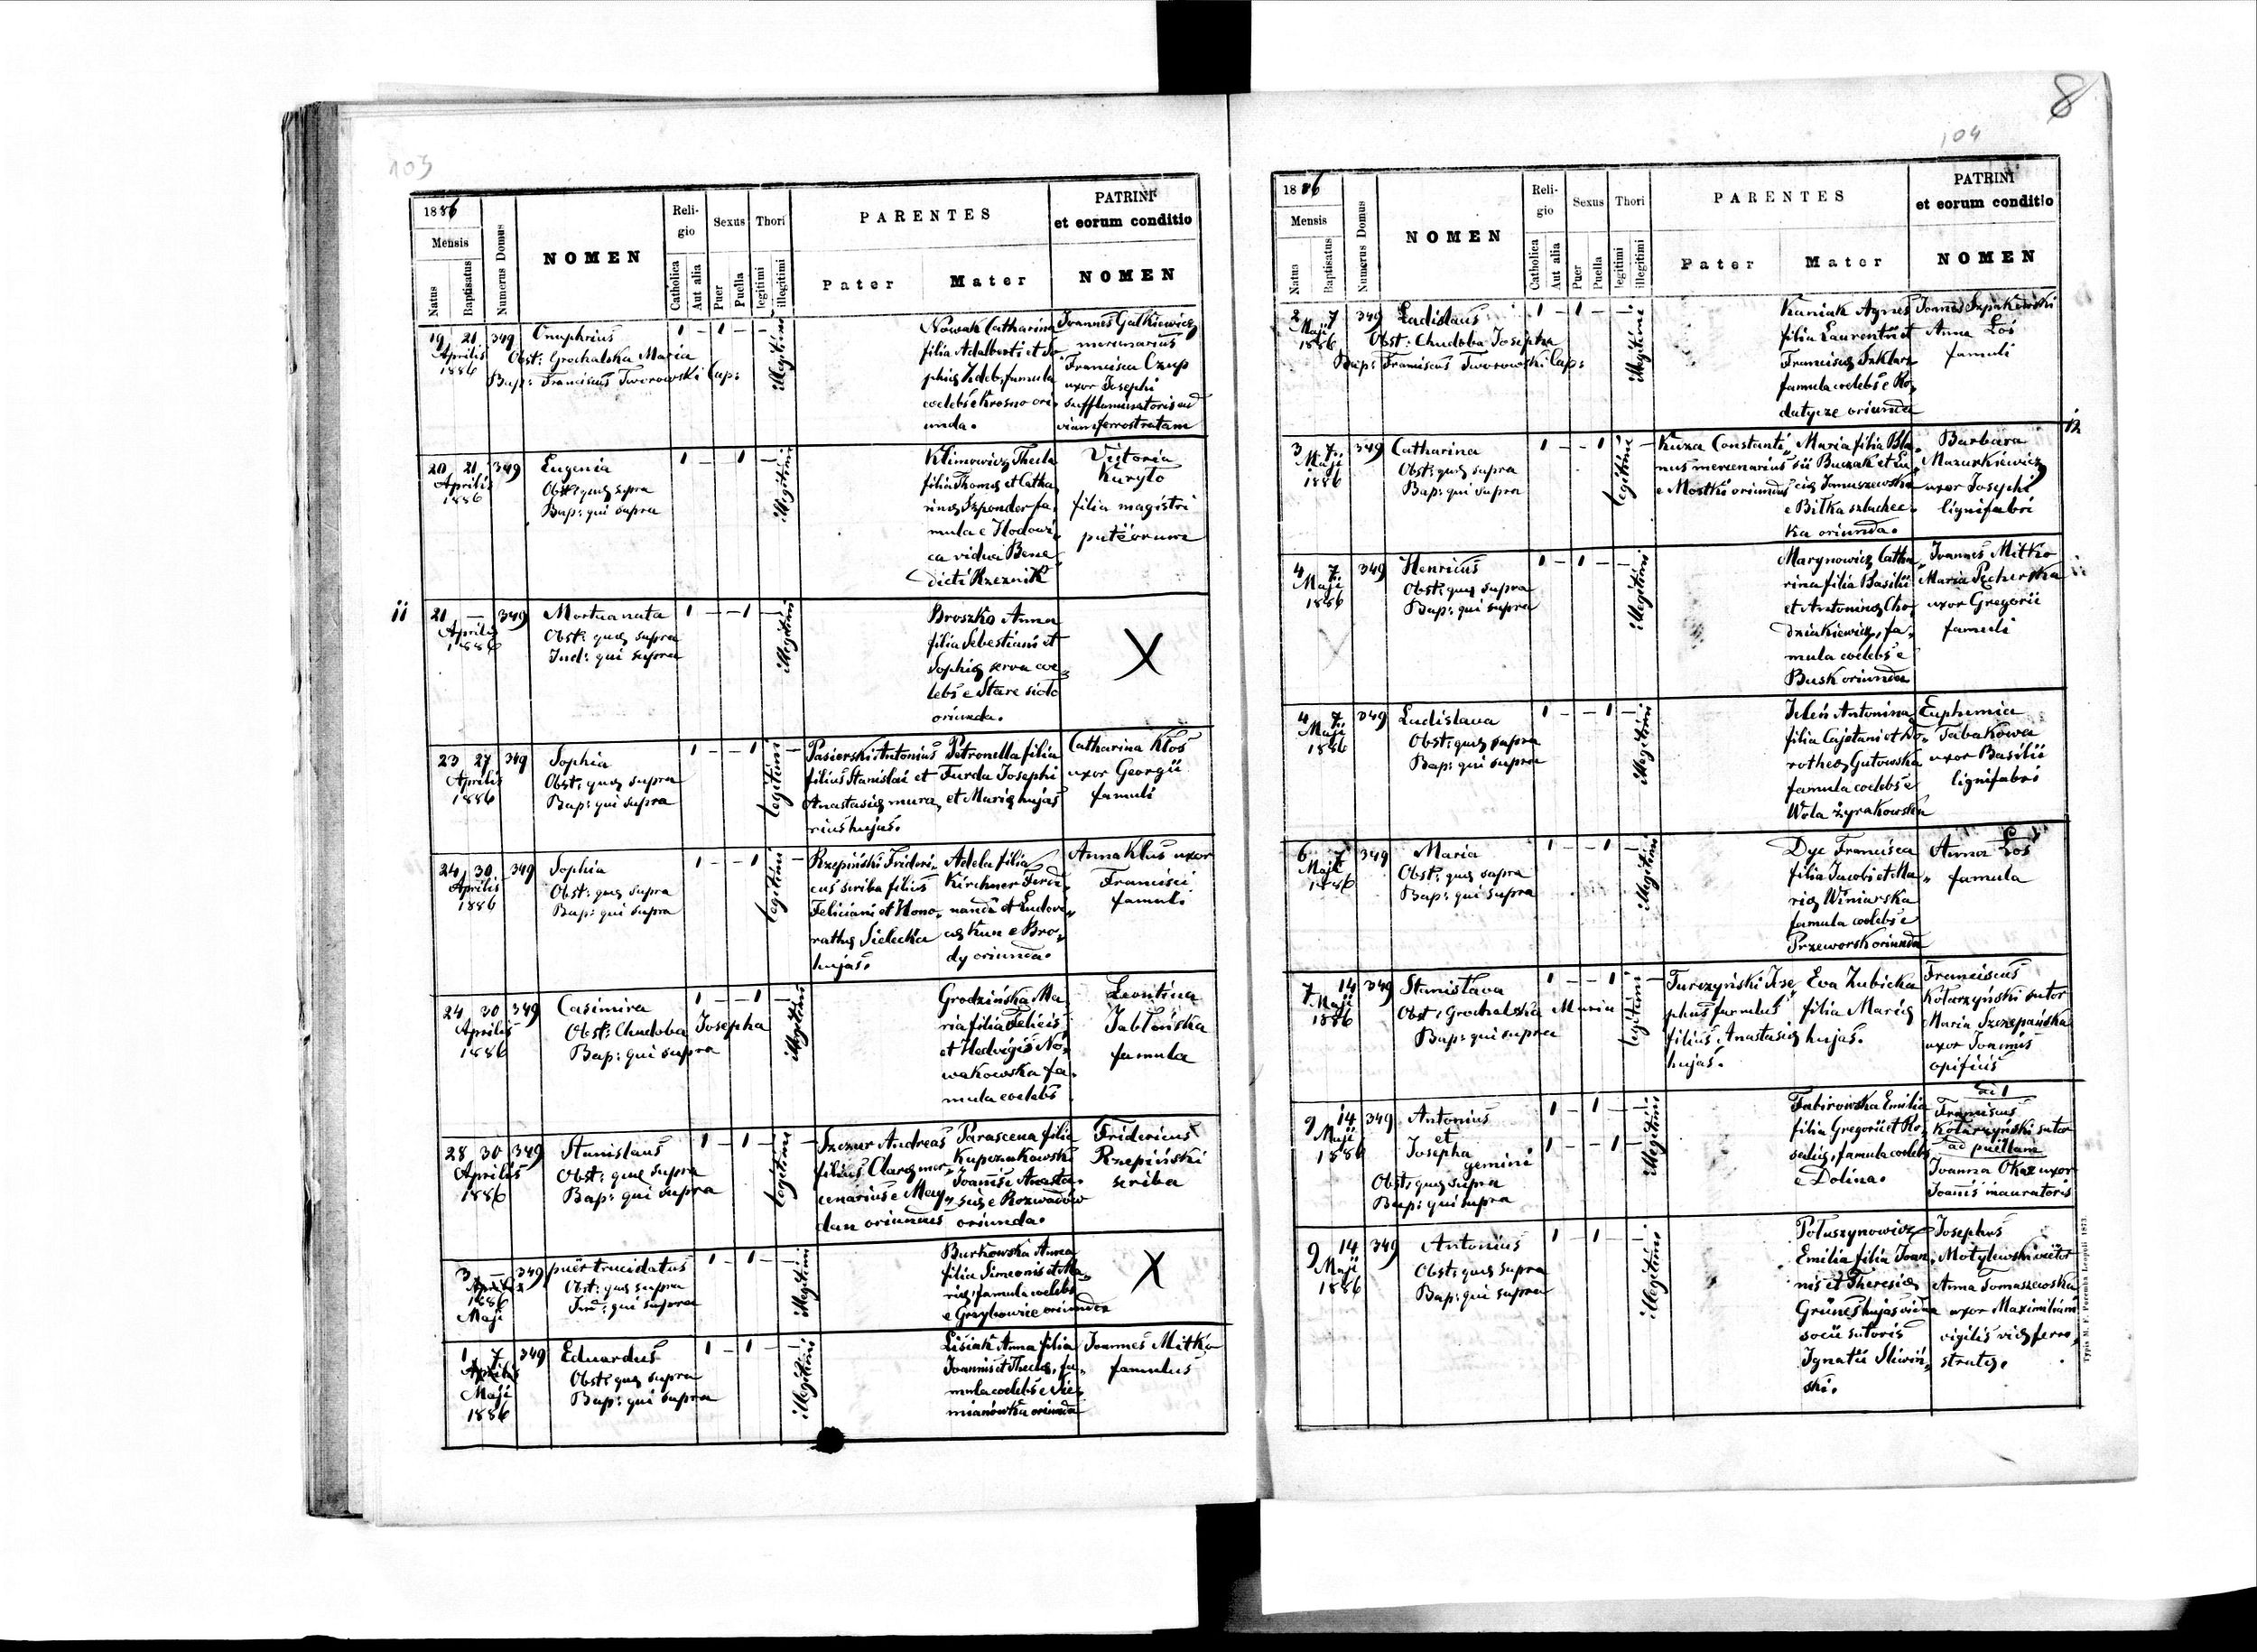 103
1886
Mensis
Natus
Baptisatus
Numerus Domus
NOMEN
Reli-
gio
Catholica
Aut alia
Sexus
Puer
Puella
Thori
legitimi
illegitimi
PARENTES
Pater
Mater
PATRINI
et eorum conditio
NOMEN
19 21 349 Onuphrius 1 - 1 - -
Aprilis
1886
Obst: Grochalska Maria
Bap: Franciscus Tworowski Cap:
illegitimi
Nowak Catharina
filia Adalberti et So
phiæ famula
coelebs e Krosno ori-
unda.
Joannes Gatkiewicz
mercenarius
Francisca Czup
uxor Josephi
sufflaminatoris ad
viam ferrostratam
20 21 349 Eugenia 1 - - 1 -
Aprilis
1886
Obst: quæ supra
Bap: qui supra
illegitimi
Klimowicz Thecla
filia Thomæ et Catha
rinæ Szponder fa,
mula e Hodowi,
ca vidua Bene
dicti Rzeznik
Victoria
Kuryło
filia magistri
puteorum
ii
21 - 349 Mortua nata 1 - - 1 -
Aprilis
1886
Obst: quæ supra
Ind: qui supra
illegitimi
Broszko Anna
filia Sebestiani et
Sophiæ serva coe
lebs e Stare sioło
oriunda.
X
23 27 349 Sophia 1 - - 1 -
Aprilis
1886
Obst: quæ supra
Bap: qui supra
legitimi
Pasierski Antonius
filius Stanislai et
Anastasiæ mura,
rius hujas.
Petronella filia
Furda Josephi
et Mariæ hujas
Catharina Kłos
uxor Georgii
famuli
24 30 349 Sophia 1 - - 1 -
Aprilis
1886
Obst: quæ supra
Bap: qui supra
legitimi
Rzepiński Frideri,
cus scriba filius
Feliciani et Hono,
rathæ Sielecka
hujas.
Adela filia
Kirchner Ferdi,
nandi et Ludovi,
cæ Kun e Bro,
dy oriunda.
Anna Klus uxor
Francisci
famuli
24 30 349 Casimira 1 - - 1 -
Aprilis
1886
Obst: Chudoba Josepha
Bap: qui supra
illegitimi
Grodzińska Ma
ria filia Felicis
et Hedvigis No,
wakowska fa,
mula coelebs
Leontina
Jabłońska
famula
28 30 349 Stanislaus 1 - 1 - -
Aprilis
1886
Obst: quæ supra
Bap: qui supra
legitimi
Szczur Andreas
filius Claræ mer,
cenarius e Mey,
dan oriundus
Parascena filia
Kupczakowski
Joannis e Anasta,
siæ e Rozwadów
oriunda.
Fridericus
Rzepiński
scriba
3 - 349 puer trucidatus 1 - 1 - -
Aprilis
1886
Maji
Obst: quæ supra
Ind: qui supra
illegitimi
Burkowska Anna
filia Simeonis et Ma,
riæ, famula coelebs
e Grzybowice oriunda
X
1 7 349 Eduardus 1 - 1 - -
Aprilis
Maji
1886
Obst: quæ supra
Bap: qui supra
illegitimi
Lisiak Anna filia
Joannis et Theclæ, fa,
mula coelebs e Sie,
mianówka oriunda
Joannes Mitko
famulus
8
104
1886
Mensis
Natus
Baptisatus
Numerus Domus
NOMEN
Reli-
gio
Catholica
Aut alia
Sexus
Puer
Puella
Thori
legitimi
illegitimi
PARENTES
Pater
Mater
PATRINI
et eorum conditio
NOMEN
2 7 349 Ladislaus 1 - 1 - -
Maji
1886
Obst: Chudoba Josepha
Bap: Franciscus Tworowski Cap:
illegitimi
Kaniak Agnes
filia Laurentii et
Franciscæ Szklarz
famula coelebs e Ro,
datycze oriunda
Joannes Szpakowski
Anna Łoś
famuli
12
3 7 349 Catharina 1 - - 1 -
Maji
1886
Obst: quæ supra
Bap: qui supra
legitimi
Kuza Constanti,
nus mercenarius
e Mostki oriundus
Maria filia Bla
sii Buczak et Lu,
ciæ Januszewska
e Biłka szlachec,
ka oriunda.
Barbara
Mazurkiewicz
uxor Josephi
lignifabri
4 7 349 Henricus 1 - 1 - -
Maji
1886
Obst: quæ supra
Bap: qui supra
illegitimi
Marynowicz Catha,
rina filia Basilii
et Antoninæ Cho,
dziakiewicz, fa,
mula coelebs e
Busk oriunda
Joannes Mitko
Maria Pecherska
uxor Gregorii
famuli
4 7 349 Ladislava 1 - - 1 -
Maji
1886
Obst: quæ supra
Bap: qui supra
illegitimi
Jeleń Antonina
filia Cajetani et Do,
rotheæ Gutowska
famula coelebs e
Wola żyrakowska
Euphemia
Tabakowa
uxor Basilii
lignifabri
6 7 349 Maria 1 - - 1 -
Maji
1886
Obst: quæ supra
Bap: qui supra
illegitimi
Dyc Francisca
filia Jacobi et Ma,
riæ Winiarska
famula coelebs e
Przeworsk oriunda
Anna Łoś
famula
7 14 349 Stanisława 1 - - 1 -
Maji
1886
Obst: Grochalska Maria
Bap: qui supra
legitimi
Turczyński Jose,
phus famulus
filius Anastasiæ
hujas.
Eva Zubicka
filia Mariæ
hujas.
Franciscus
Kotarzyński sutor
Maria Szczepańska
uxor Joannis
opificis
9 14 349 Antonius 1 - 1 - -
Maji
1886
et
Josepha 1 - - 1 -
gemini
Obst: quæ supra
Bap: qui supra
illegitimi
Fabirowska Emilia
filia Gregorii et Ro,
saliæ, famula coelebs
e Dolina.
ad 1
Franciscus
Kotarzyński sutor
ad puellam
Joanna Okaz uxor
Joannis mauratoris
9 14 349 Antonius 1 - 1 - -
Maji
1886
Obst: quæ supra
Bap: qui supra
illegitimi
Potuszynowicz
Emilia filia Joan,
nis et Theresiæ
Grünes hujas vidua
socii sutoris
Ignatii Sliwiń,
ski.
Josephus
Motylewski viëtor
Anna Tomaszewska
uxor Maximiliani
vigilis viæ ferro,
stratæ.
Typis M. F. Poremba Leopoli 1873.